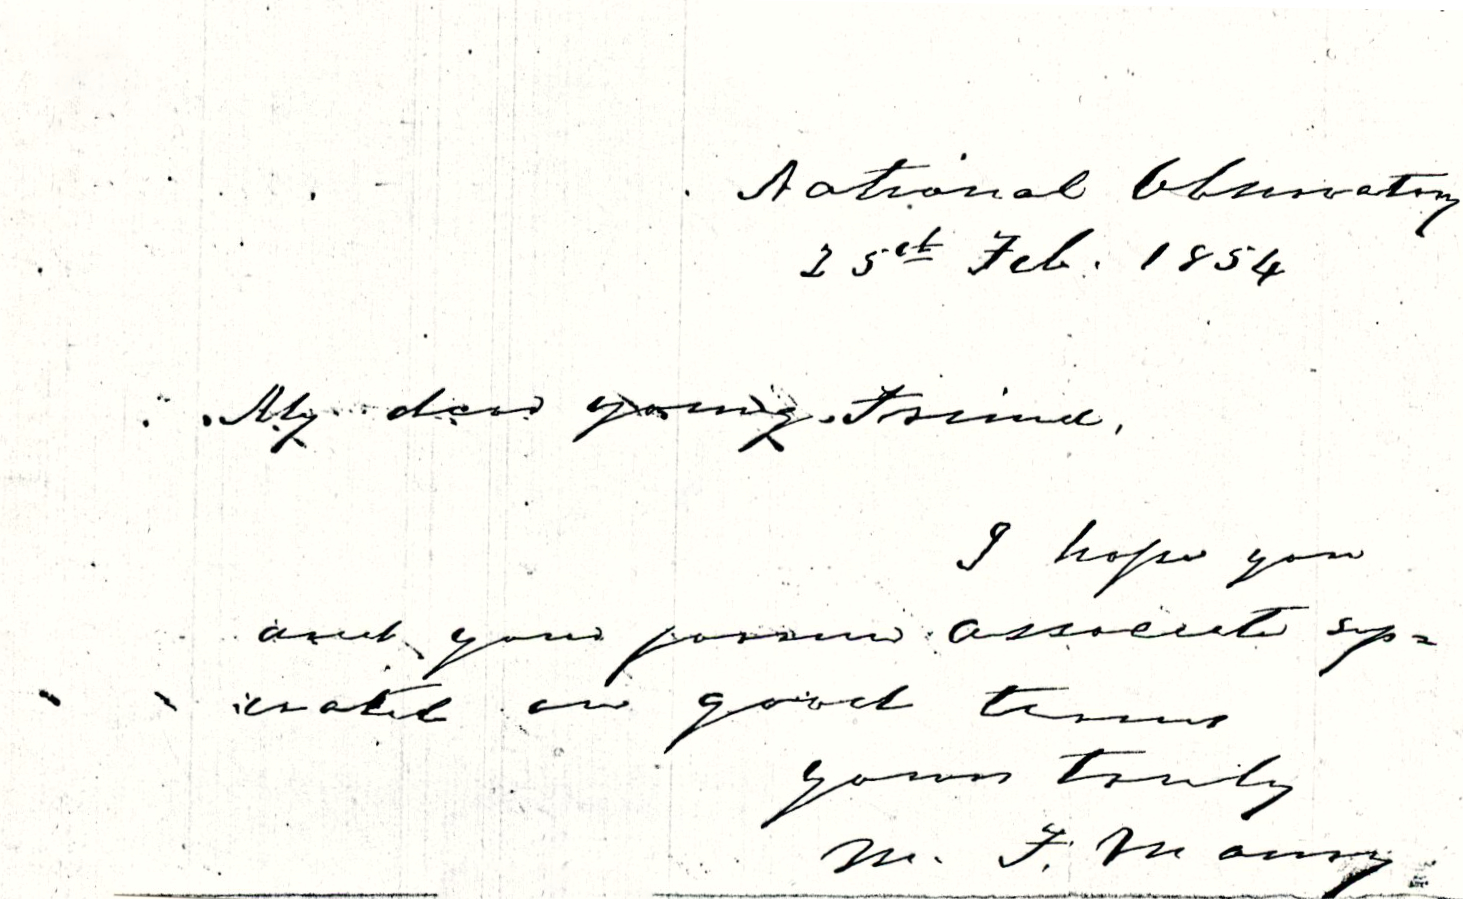 National Observatory
25th Feb. 1854
My dear young Friend,
I hope you
and your former associate sep=
erated on good terms
yours truly
M. F. Maury